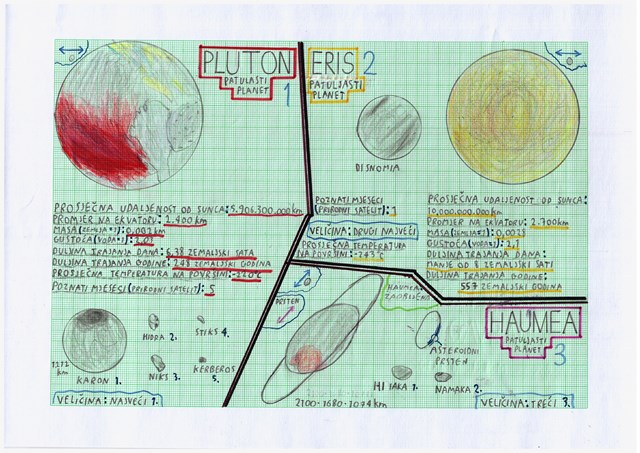 PLUTON
PATULJASTI
PLANET
1
PROSJEČNA UDALJENOST OD SUNCA: 5.906.300.000km
PROMJER NA EKVATORU: 2.400 km
MASA (ZEMLJA=1): 0.002 km
GUSTOĆA (VODA=1):
DULJINA TRAJANJA DANA: 6.38 ZEMALJSKI SATA
DULJINA TRAJANJA GODINE: 248 ZEMALJSKI GODINA
PROSJEČNA TEMPERATURA NA POVRŠINI: -220°C
POZNATI MJESECI (PRIRODNI SATELIT): 5
KARON 1.
HIDRA 2.
NIKS 3.
STIKS 4.
KERBEROS
5.
VELIČINA: NAJVEĆI 1.
ERIS 2
PATULJASTI
PLANET
DISNOMIA
POZNATI MJESECI
(PRIRODNI SATELIT): 1
VELIČINA: DRUGI NAJVEĆI
PROSJEČNA TEMPERATURA
NA POVRŠINI: -243°C
PROSJEČNA UDALJENOST OD SUNCA:
10.000.000.000km
PROMJER NA EKVATORU: 2.700km
MASA (ZEMLJA=1): 0,0028
GUSTOĆA (VODA=1): 2,1
DULJINA TRAJANJA DANA:
MANJE OD 8 ZEMALJSKI SATI
DULJINA TRAJANJA GODINE:
557 ZEMALJSKI GODINA
HAUMEA
PATULJASTI
PLANET
3
PRSTEN
HAUMEA
ASTEROIDNI
PRSTEN
HIIAKA 1.
NAMAKA 2.
VELIČINA: TREĆI 3.